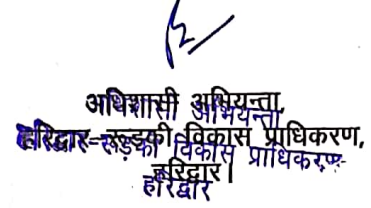 अधिशासी अभियन्ता,
हरिद्वार-रूड़की विकास प्राधिकरण,
हरिद्वार।
अभियन्ता
हरिद्वार-रुड़की विकास प्राधिकरण
हरिद्वार